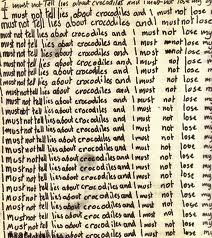 I must not tell lies about crocodiles and I must not lose my
I must not tell lies about crocodiles and I must not lose m
must not tell lies about crocodiles and I must not lose
must not tell lies about crocodiles and I must not lose my
must not tell lies about crocodiles and I must not lose my
must not tell lies about crocodiles and I must not lose my
must not tell lies about crocodiles and I must not lose my
must not tell lies about crocodiles and I must not lose my
must not tell lies about crocodiles and I must not lose my
must not tell lies about crocodiles and I must not lose my
must not tell lies about crocodiles and I must not lose my
must not tell lies about crocodiles and I must not lose my
must not tell lies about crocodiles and I must not lose my
must not tell lies about crocodiles and I must not lose my
must not tell lies about crocodiles and I must not lose my
must not tell lies about crocodiles and I must not lose my
must not tell lies about crocodiles and I must not lose my
must not tell lies about crocodiles and I must not lose my
must not tell lies about crocodiles and I must not lose my
must not tell lies about crocodiles and I must not lose my